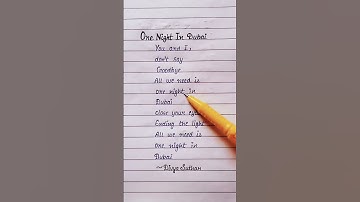 One Night In Dubai
You and I,
don't say
Goodbye
All we need is
one night in
Dubai
close your eyes
Ending the light
All we need is
one night in
Dubai
~ Divya Suthar